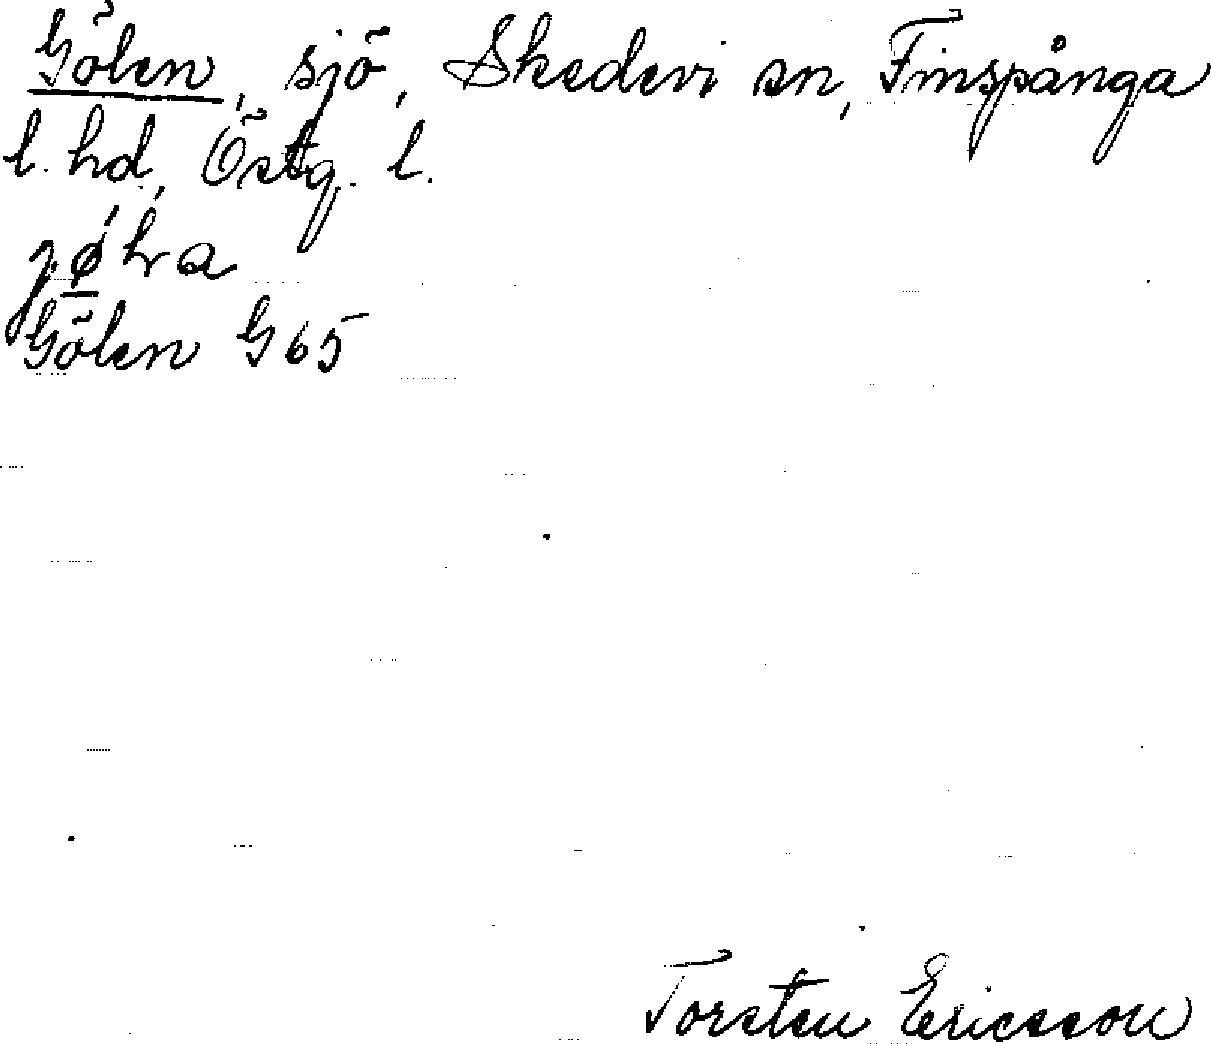 Gölen, sjö, Skedevi sn, Finspånga
l. hd, Östg. l.
Gölen G 65
Torsten Ericsson